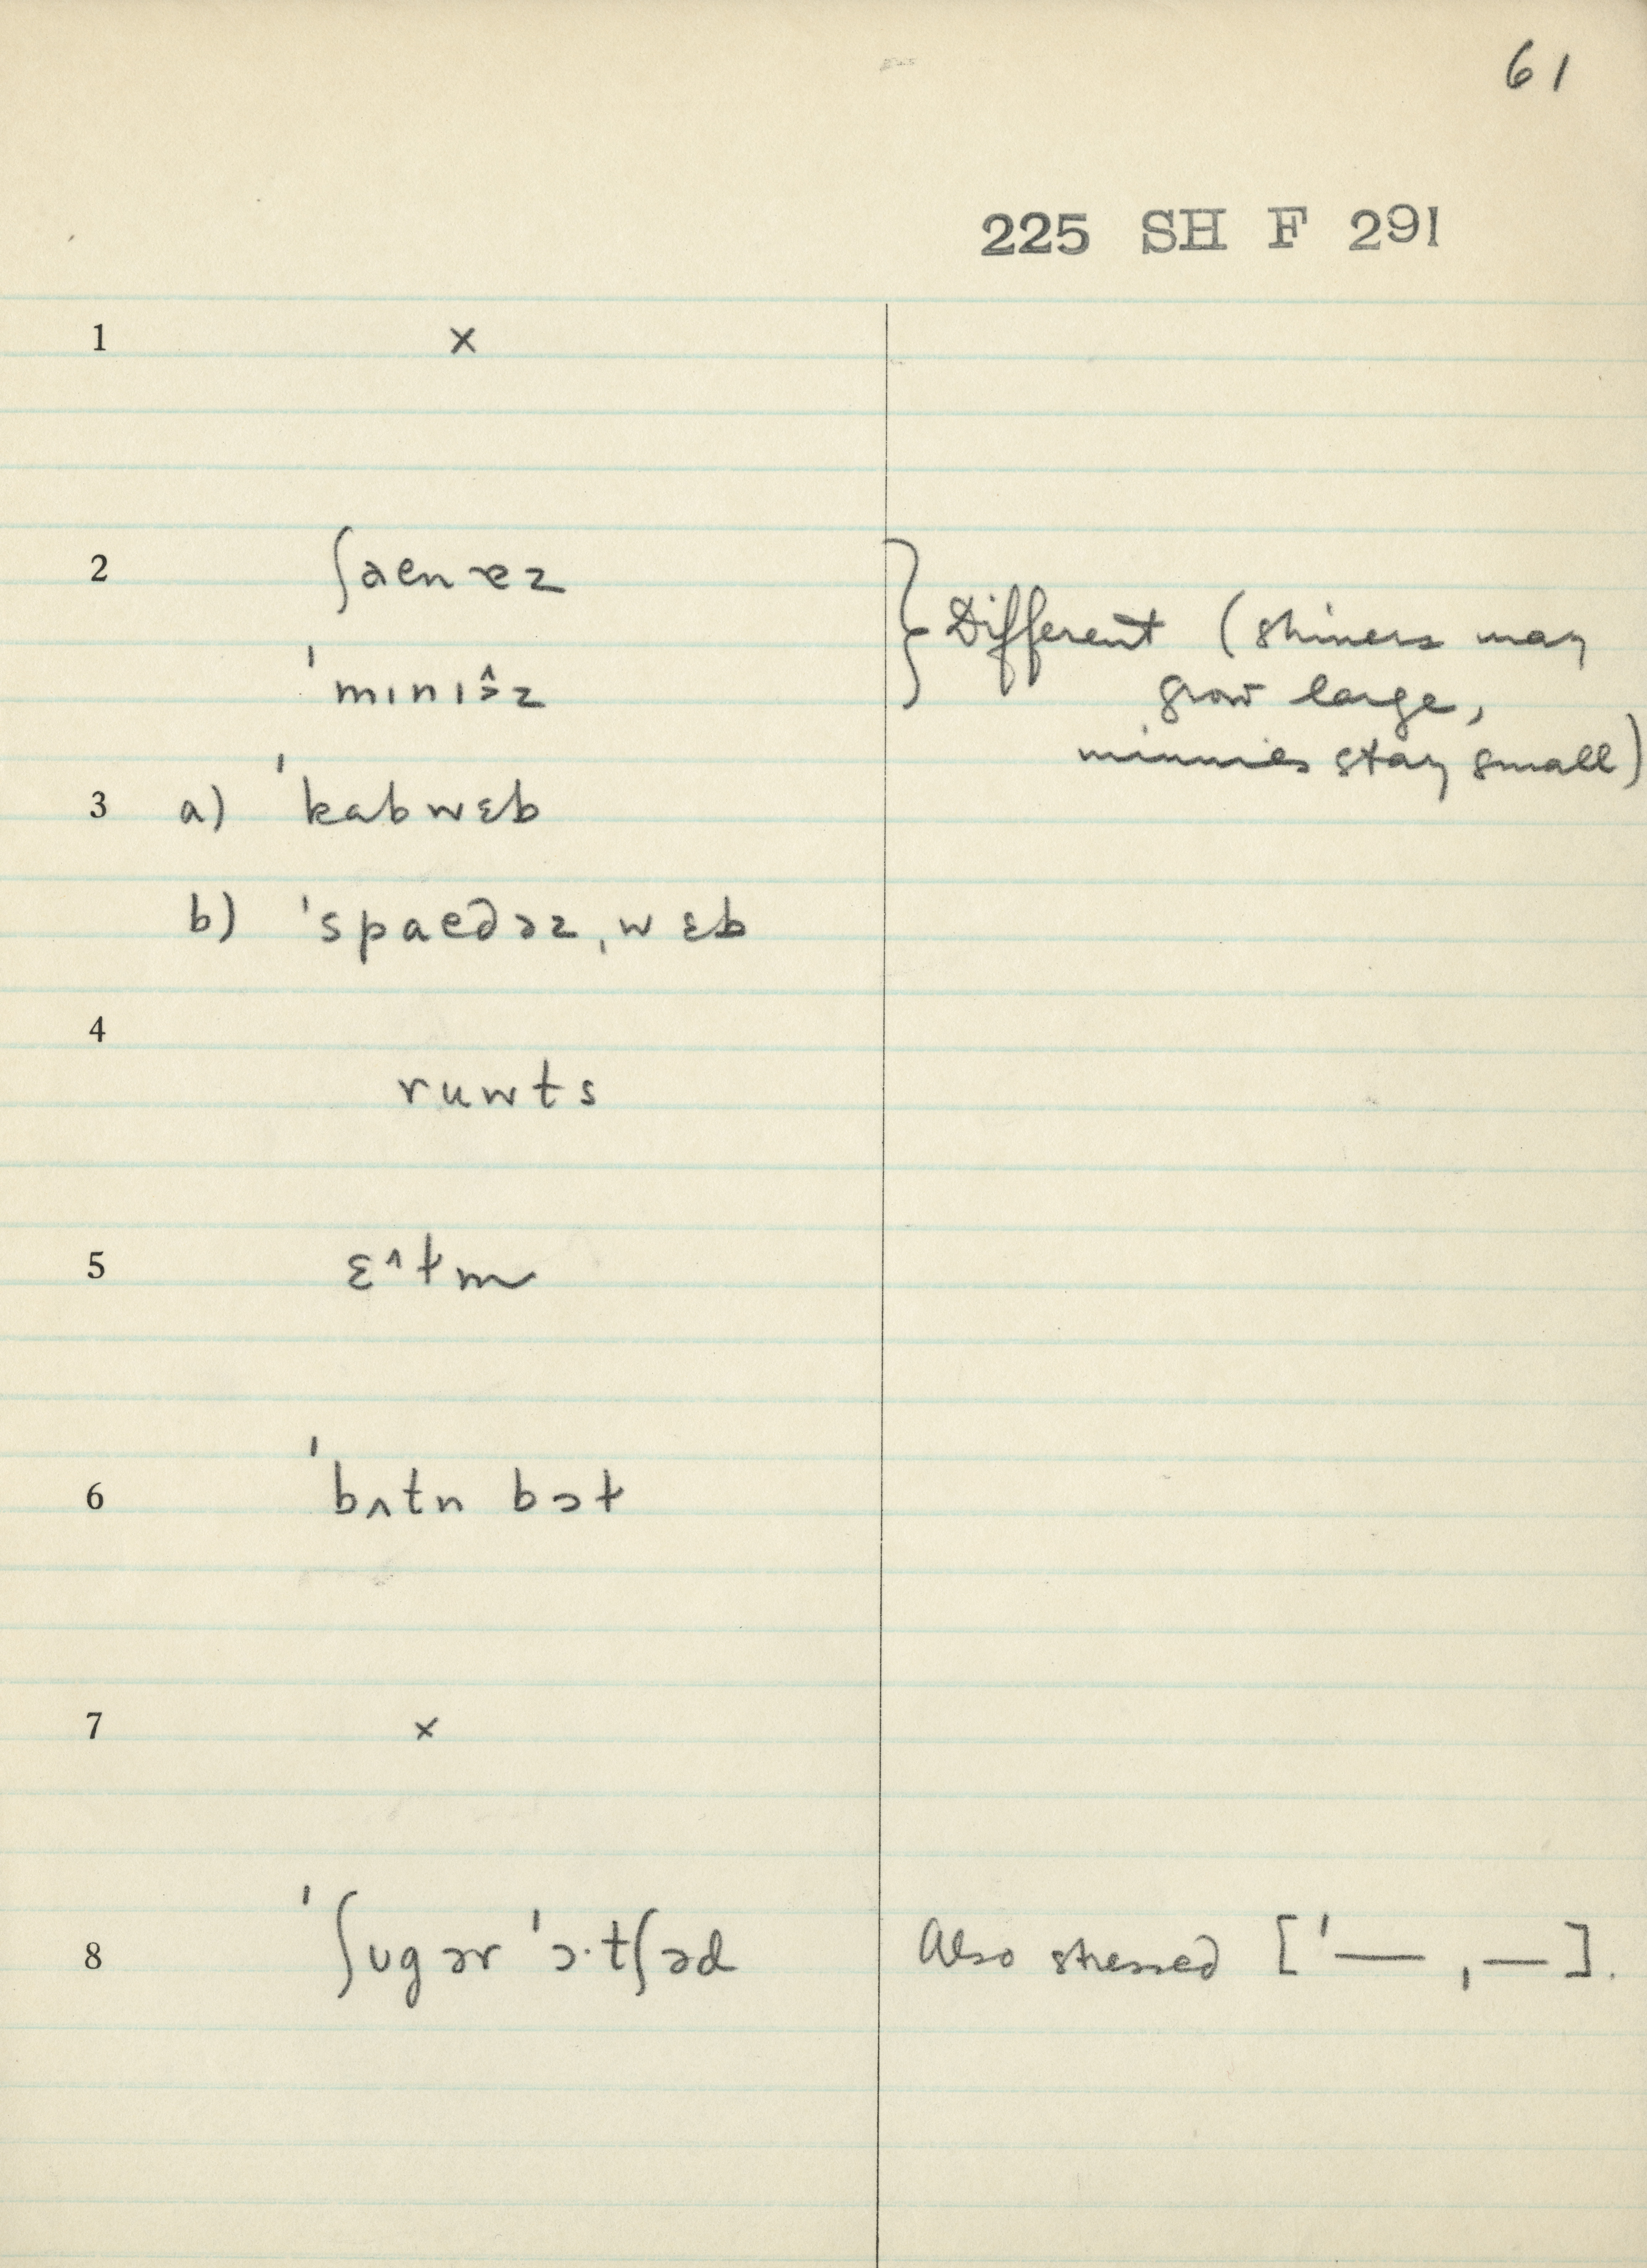 61
225 SH F 291
1 x
2 ʃaenɚz } Different (shiners may
ˈmɪnɪə̭̂z grow large,
minnies stay small)
3 a) ˈkabwɛb
b) ˈspaedəz ˌwɛb
4
ruwts
5 ɛ^ɫm
6 ˈbʌtn bɔɫ
7 x
8 ˈʃʊgər ˈɔ·tʃəd Also stressed [ˈ— ˌ—].